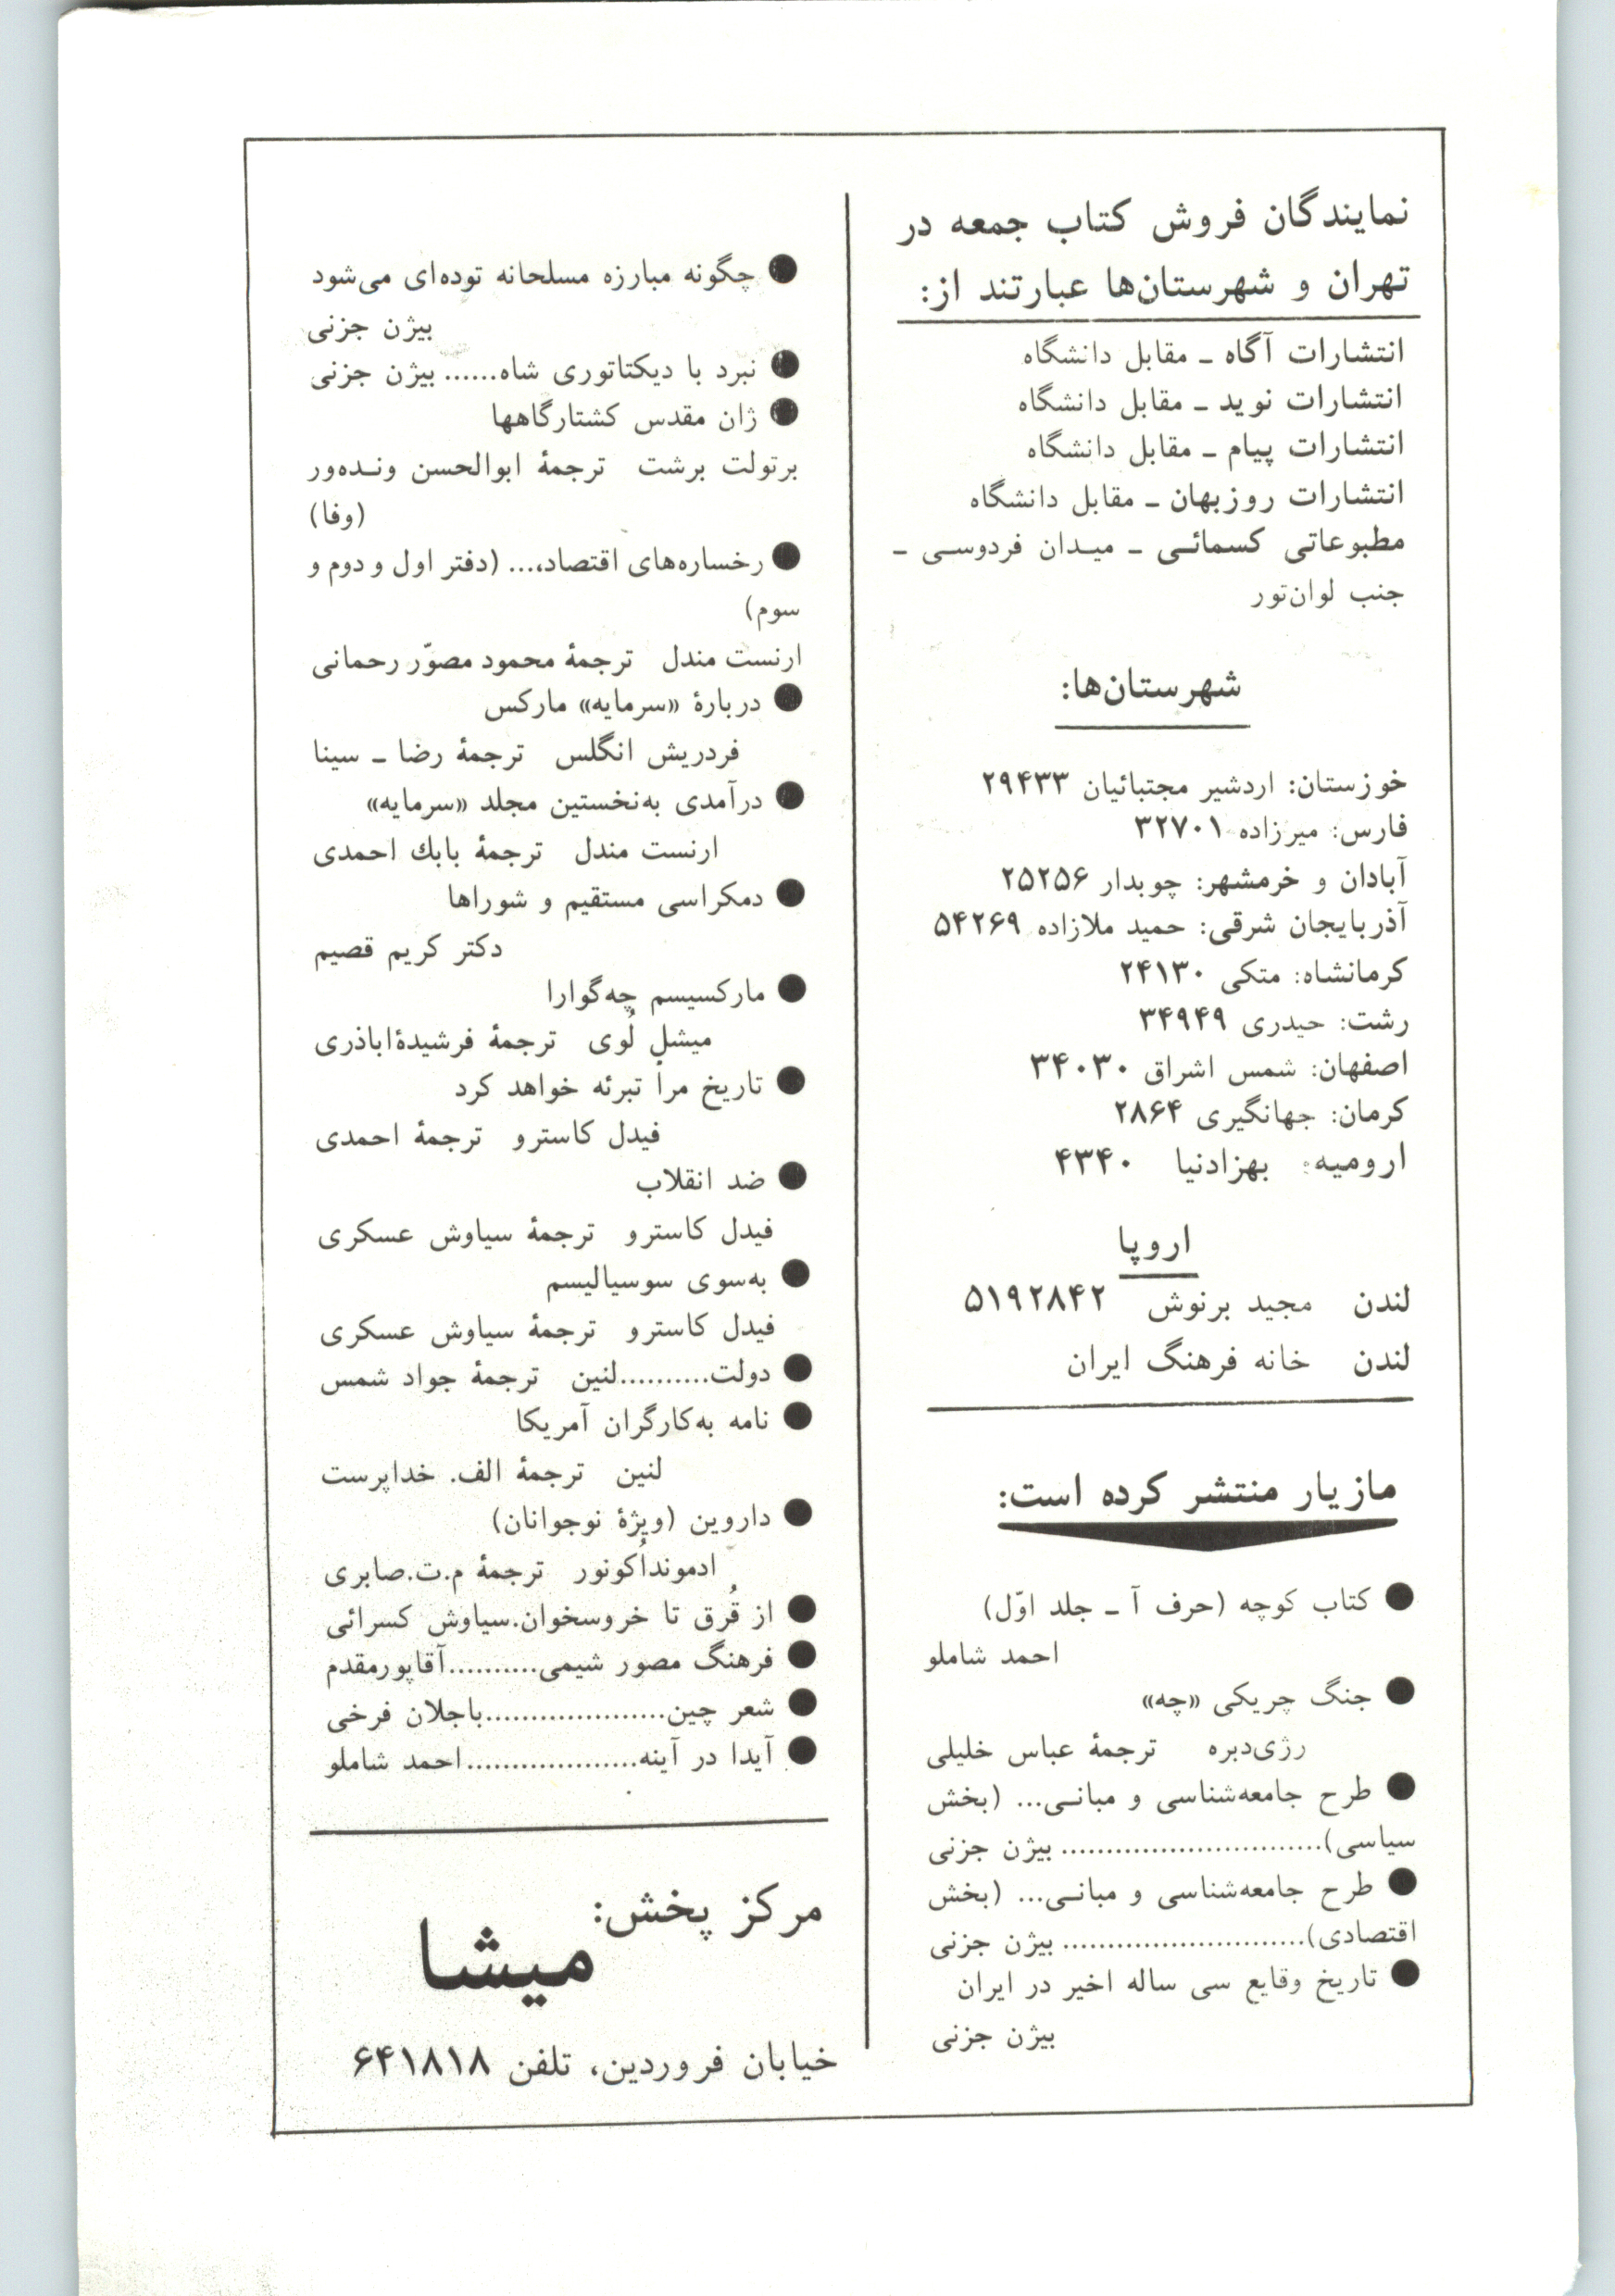 نمایندگان فروش کتاب جمعه در
تهران و شهرستان‌ها عبارتند از:
انتشارات آگاه ـ مقابل دانشگاه
انتشارات نوید ـ مقابل دانشگاه
انتشارات پیام ـ مقابل دانشگاه
انتشارات روزبهان ـ مقابل دانشگاه
مطبوعاتی کسمائـی ـ میـدان فردوسـی ـ
جنب لوان‌تور
شهرستان‌ها:
خوزستان: اردشیر مجتبائیان ۲۹۴۳۳
فارس: میرزاده ۳۲۷۰۱
آبادان و خرمشهر: چوبدار ۲۵۲۵۶
آذربایجان شرقی: حمید ملازاده ۵۴۲۶۹
کرمانشاه: متکی ۲۴۱۳۰
رشت: حیدری ۳۴۹۴۹
اصفهان: شمس اشراق ۳۴۰۳۰
کرمان: جهانگیری ۲۸۶۴
ارومیه: بهزادنیا ۴۳۴۰
اروپا
لندن مجید برنوش ۵۱۹۲۸۴۲
لندن خانه فرهنگ ایران
مازیار منتشر کرده است:
● کتاب کوچه (حرف آ ـ جلد اوّل)
احمد شاملو
● جنگ چریکی «چه»
رژی‌دبره ترجمهٔ عباس خلیلی
● طرح جامعه‌شناسی و مبانـی... (بخش
سیاسی)............................ بیژن جزنی
● طرح جامعه‌شناسی و مبانـی... (بخش
اقتصادی)........................... بیژن جزنی
● تاریخ وقایع سی ساله اخیر در ایران
بیژن جزنی
● چگونه مبارزه مسلحانه توده‌ای می‌شود
بیژن جزنی
● نبرد با دیکتاتوری شاه...... بیژن جزنی
● ژان مقدس کشتارگاهها
برتولت برشت ترجمهٔ ابوالحسن ونـده‌ور
(وفا)
● رخساره‌های اقتصاد،... (دفتر اول و دوم و
سوم)
ارنست مندل ترجمهٔ محمود مصوّر رحمانی
● دربارهٔ «سرمایه» مارکس
فردریش انگلس ترجمهٔ رضا ـ سینا
● درآمدی به‌نخستین مجلد «سرمایه»
ارنست مندل ترجمهٔ بابك احمدی
● دمکراسی مستقیم و شوراها
دکتر کریم قصیم
● مارکسیسم چه‌گوارا
میشل لُوی ترجمهٔ فرشیدهٔ‌اباذری
● تاریخ مرا تبرئه خواهد کرد
فیدل کاسترو ترجمهٔ احمدی
● ضد انقلاب
فیدل کاسترو ترجمهٔ سیاوش عسکری
● به‌سوی سوسیالیسم
فیدل کاسترو ترجمهٔ سیاوش عسکری
● دولت..........لنین ترجمهٔ جواد شمس
● نامه به‌کارگران آمریکا
لنین ترجمهٔ الف. خداپرست
● داروین (ویژهٔ نوجوانان)
ادمونداُکونور ترجمهٔ م.ت.صابری
● از قُرق تا خروسخوان.سیاوش کسرائی
● فرهنگ مصور شیمی..........آقاپورمقدم
● شعر چین....................باجلان فرخی
● آیدا در آینه...................احمد شاملو
مرکز پخش:
میشا
خیابان فروردین، تلفن ۶۴۱۸۱۸